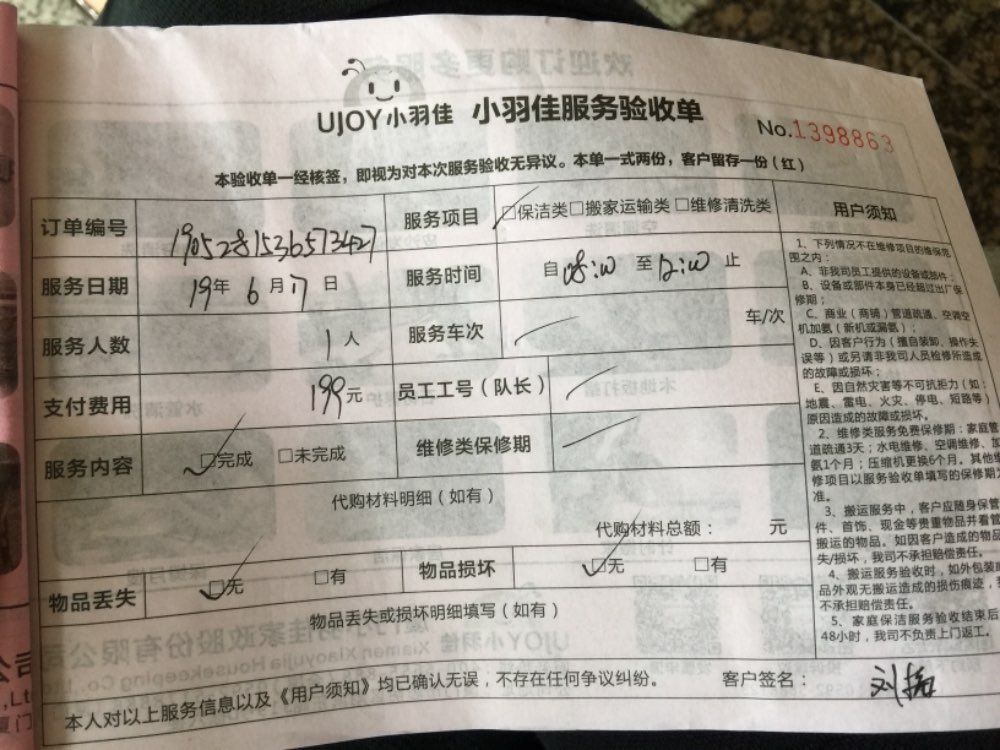 UJOY小羽佳 小羽佳服务验收单
No.1398863
本验收单一经核签，即视为对本次服务验收无异议。本单一式两份，客户留存一份（红）
订单编号 1905281536573427 服务项目 □保洁类□搬家运输类□维修清洗类
服务日期 19年6月17日 服务时间 自08:00至12:00止
服务人数 1人 服务车次 车/次
支付费用 199元 员工工号（队长）
服务内容 □完成 □未完成 维修类保修期
代购材料明细（如有）
代购材料总额： 元
物品丢失 □无 □有 物品损坏 □无 □有
物品丢失或损坏明细填写（如有）
本人对以上服务信息以及《用户须知》均已确认无误，不存在任何争议纠纷。 客户签名：
用户须知
1、下列情况不在维修项目的维保范
围之内：
A、非我司员工提供的设备或部件；
B、设备或部件本身已经超过出厂保
修期；
C、商业（商铺）管道疏通、空调空
机加氨（新机或漏氨）；
D、因客户行为（擅自装卸、操作失
误等）或另请非我司人员检修所造成
的故障或损坏；
E、因自然灾害等不可抗拒力（如：
地震、雷电、火灾、停电、短路等）
原因造成的故障或损坏。
2、维修类服务免费保修期：家庭管
道疏通3天；水电维修、空调维修、加
氨1个月；压缩机更换6个月。其他维
修项目以服务验收单填写的保修期为
准。
3、搬运服务中，客户应随身保管
件、首饰、现金等贵重物品并看管
搬运的物品。如因客户造成的物品
失/损坏，我司不承担赔偿责任。
4、搬运服务验收时，如外包装
品外观无搬运造成的损伤痕迹，
不承担赔偿责任。
5、家庭保洁服务验收结束后
48小时，我司不负责上门返工。